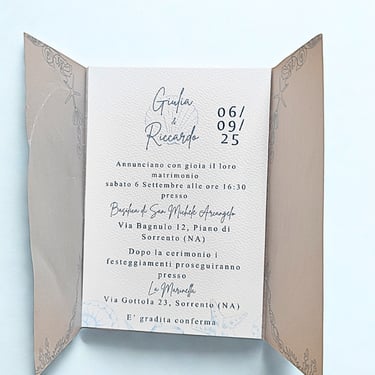 Giulia
&
Riccardo
06/
09/
25
Annunciano con gioia il loro
matrimonio
sabato 6 Settembre alle ore 16:30
presso
Basilica di San Michele Arcangelo
Via Bagnulo 12, Piano di
Sorrento (NA)
Dopo la cerimonio i
festeggiamenti proseguiranno
presso
La Marinella
Via Gottola 23, Sorrento (NA)
E' gradita conferma